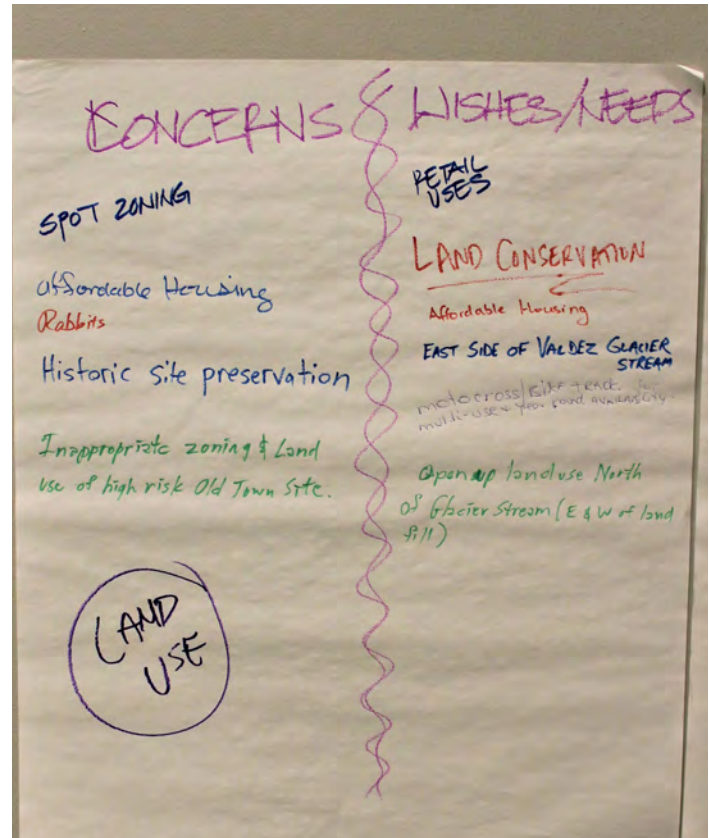 CONCERNS
SPOT ZONING
affordable Housing
Rabbits
Historic site preservation
Inappropriate zoning & Land
use of high risk Old Town Site.
LAND
USE
WISHES/NEEDS
RETAIL
USES
LAND CONSERVATION
Affordable Housing
EAST SIDE OF VALDEZ GLACIER
STREAM
motocross/BIKE TRACK for
multi-use & year round AVAILABILITY.
Open up land use North
of Glacier Stream (E & W of land
fill)